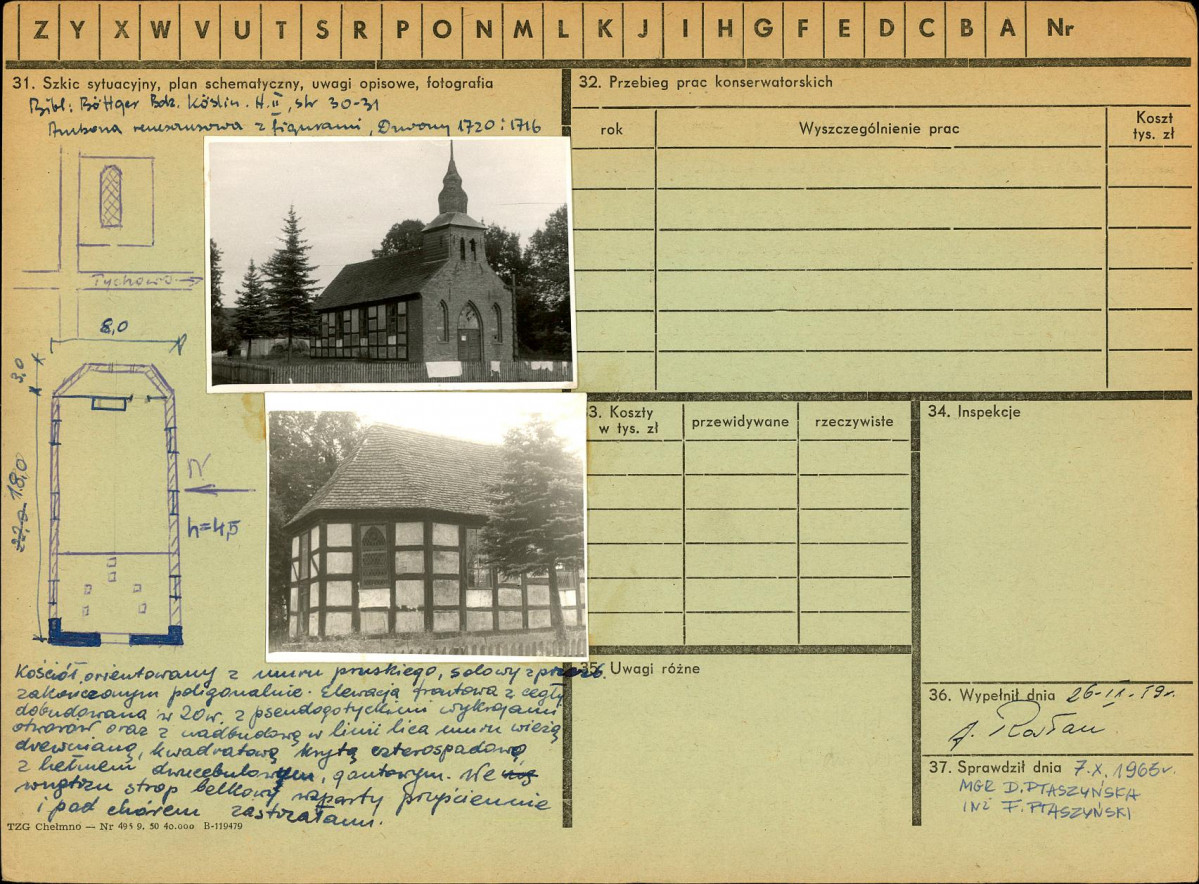 Z Y X W V U T S R P O N M L K J I H G F E D C B A Nr
31. Szkic sytuacyjny, plan schematyczny, uwagi opisowe, fotografia
Bibl: Böttger Bdk. Köslin. H.II, str 30-31
Ambona renesansowa z figurami, Dzwony 1720 i 1716
Tychowo
8,0
3,0
22,0 18,0
h=4,5
Kościół orientowany z muru pruskiego, salowy z prezb.
zakończonym poligonalnie. Elewacja frontowa z cegły
dobudowana w 20 w. z pseudogotyckimi wykrojami
otworów oraz z nadbudową w linii lica muru wieżą
drewnianą, kwadratową krytą czterospadowo,
z hełmem dwucebulowym, gontowym. We
wnętrzu strop belkowy wsparty przyściennie
i pod chórem zastrzałami.
TZG Chełmno — Nr 495 9. 50 40.000 B-119479
32. Przebieg prac konserwatorskich
rok
Wyszczególnienie prac
Koszt
tys. zł
3. Koszty
w tys. zł
przewidywane
rzeczywiste
34. Inspekcje
35. Uwagi różne
36. Wypełnił dnia 26-IX-59r.
37. Sprawdził dnia 7.X.1963r.
MGR D.PTASZYŃSKA
INŻ F. PTASZYŃSKI